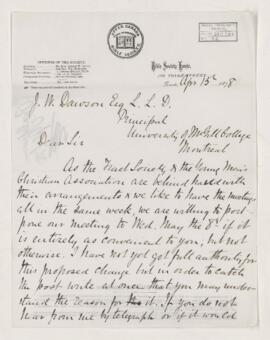 UPPER CANADA
BIBLE SOCIETY
OFFICERS OF THE SOCIETY.
Bible Society House,
Apr 15th 1878
J. W. Dawson Esq L.L.D.
Principal
University of McGill College
Montreal
Dear Sir
As the Tract Society & the Young Men's
Christian Association are behind hand with
their arrangements & we like to have the meetings
all in the same week, we are willing to post-
pone our meeting to Wed. May the 8th if it
is entirely as convenient to you, but not
otherwise. I have not yet got full authority for
this proposed change but in order to catch
the post write at once that you may under-
stand the reason for it. If you do not
hear from me by telegraph or if it would